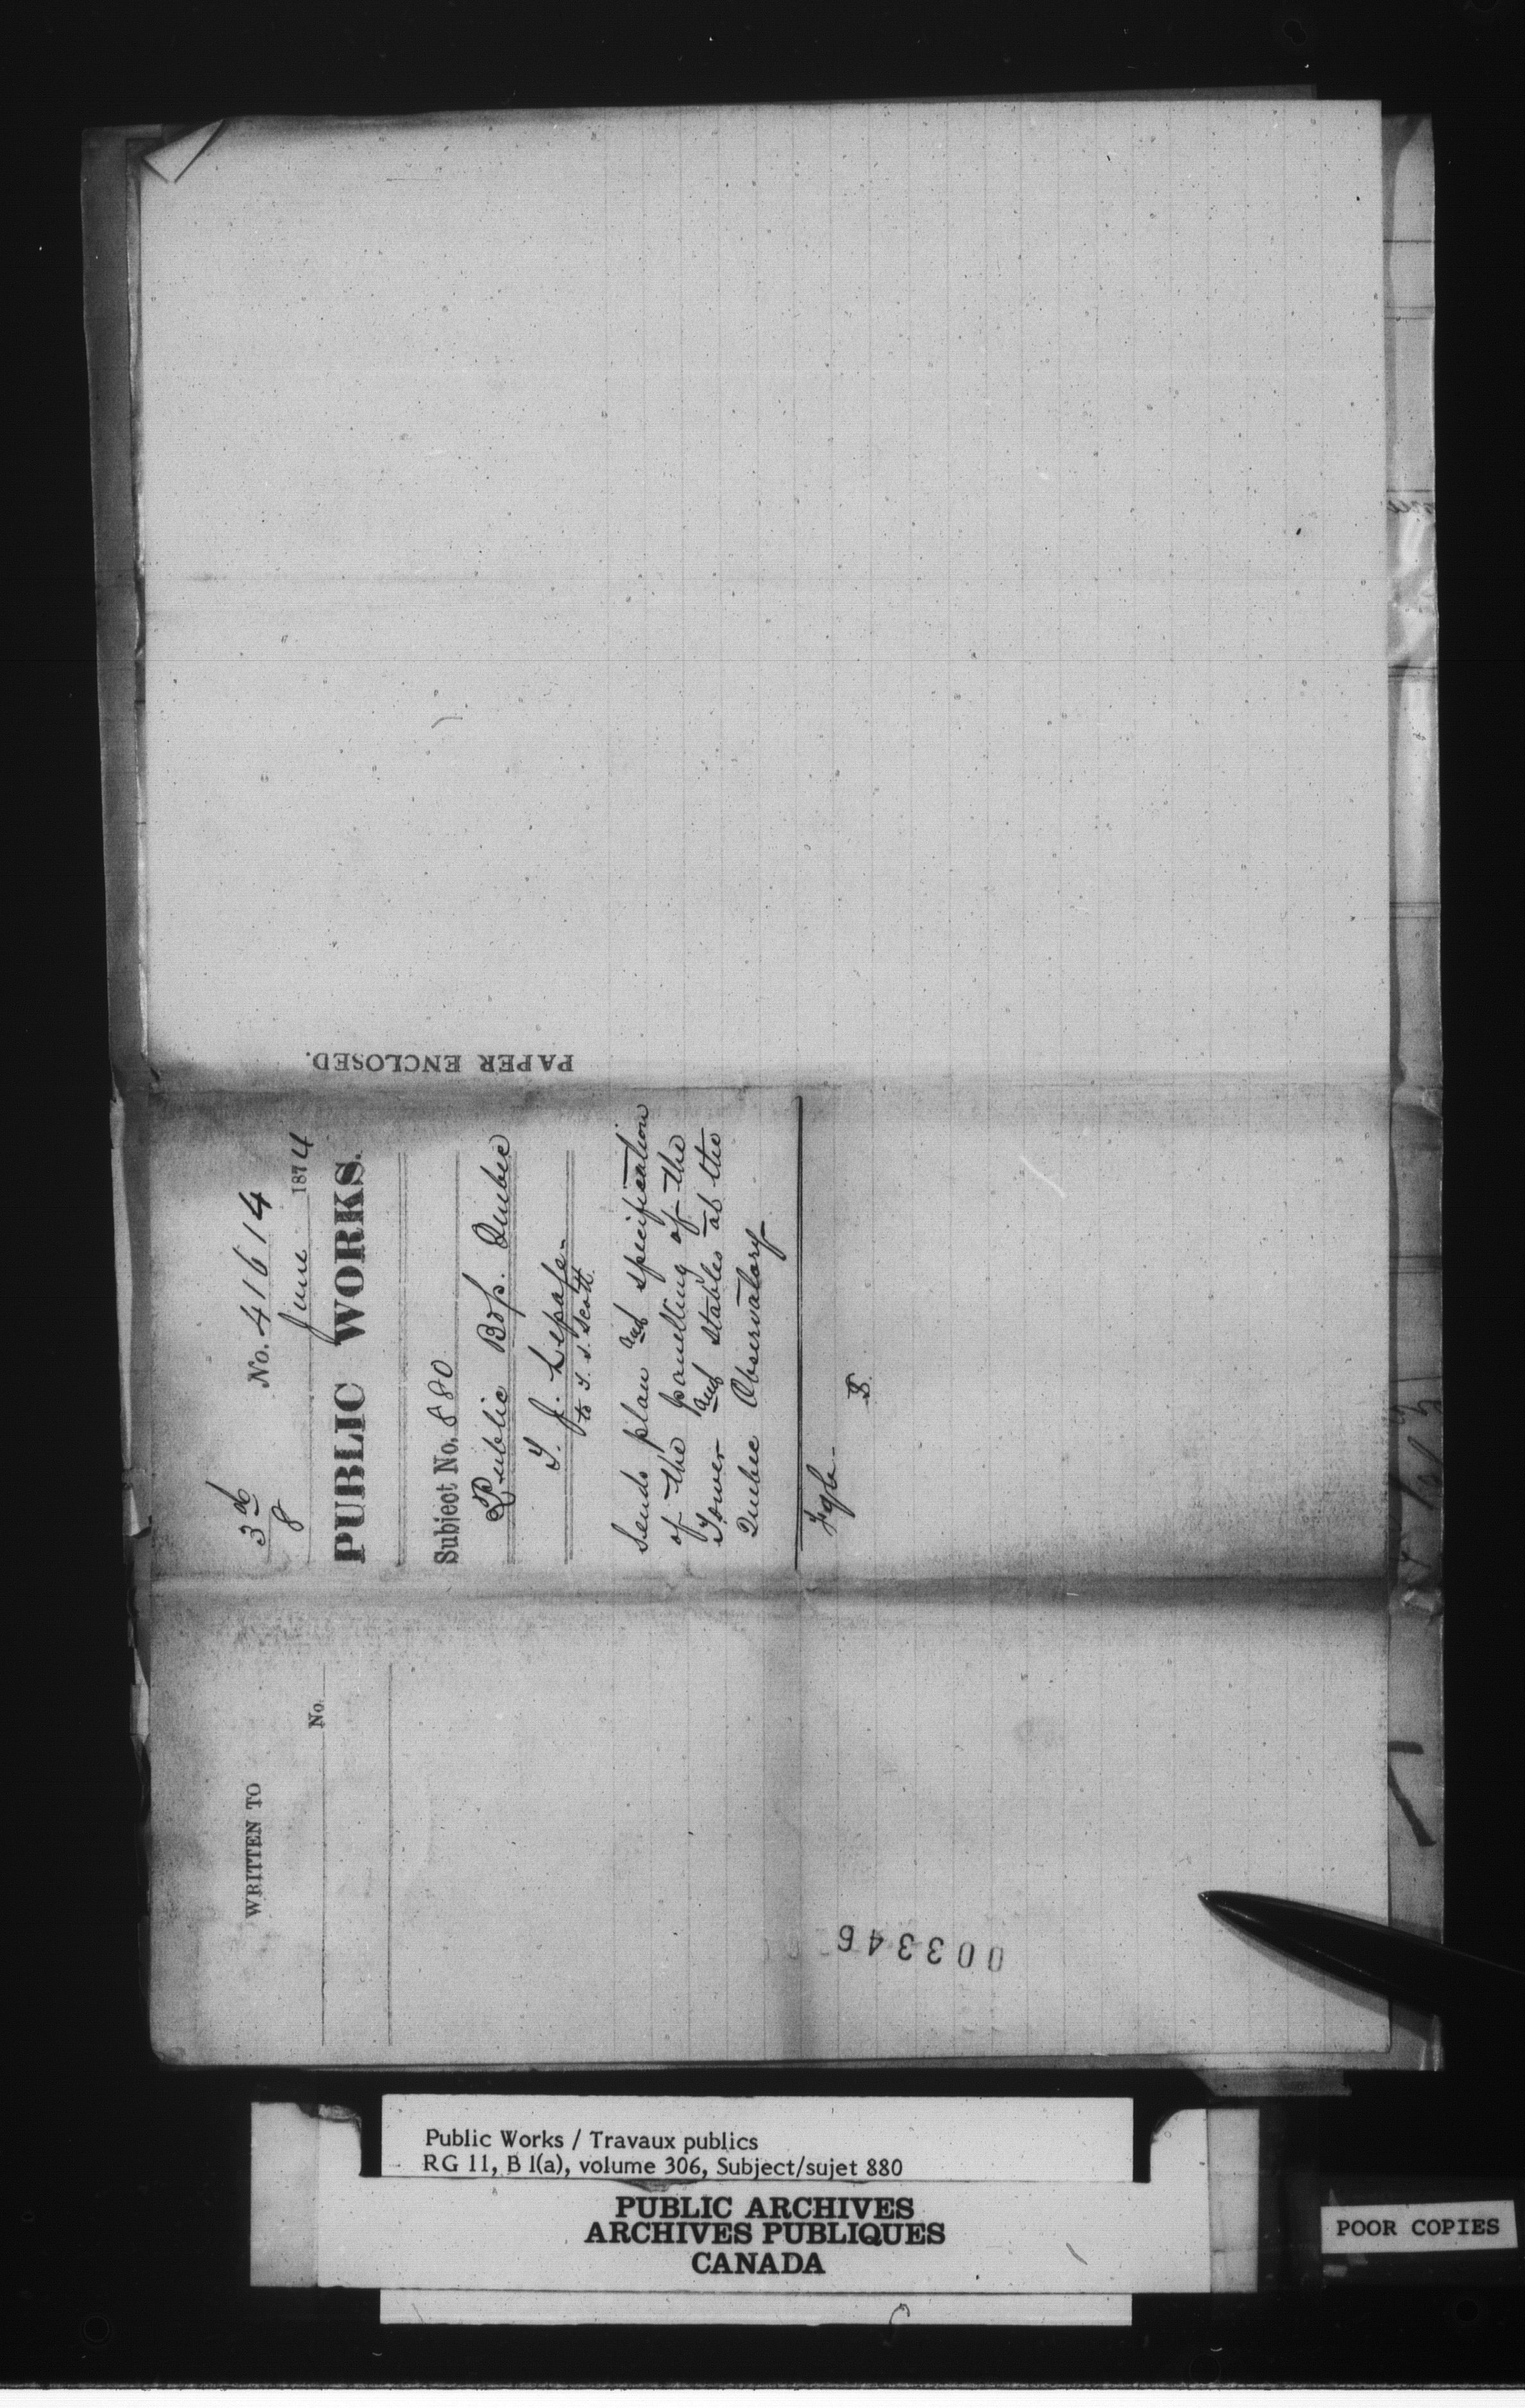 3rd
8
No. 41614
June 1874
PUBLIC WORKS.
Subject No. 880
Public Bds. Quebec
T. J. Lepage-
to T. S. Scott.
Sends plan and specification
of the panelling of the
Tower and stables at the
Quebec Observatory
PAPER ENCLOSED.
WRITTEN TO
No.
003346
Public Works / Travaux publics
RG 11, B 1(a), volume 306, Subject/sujet 880
PUBLIC ARCHIVES
ARCHIVES PUBLIQUES
CANADA
POOR COPIES